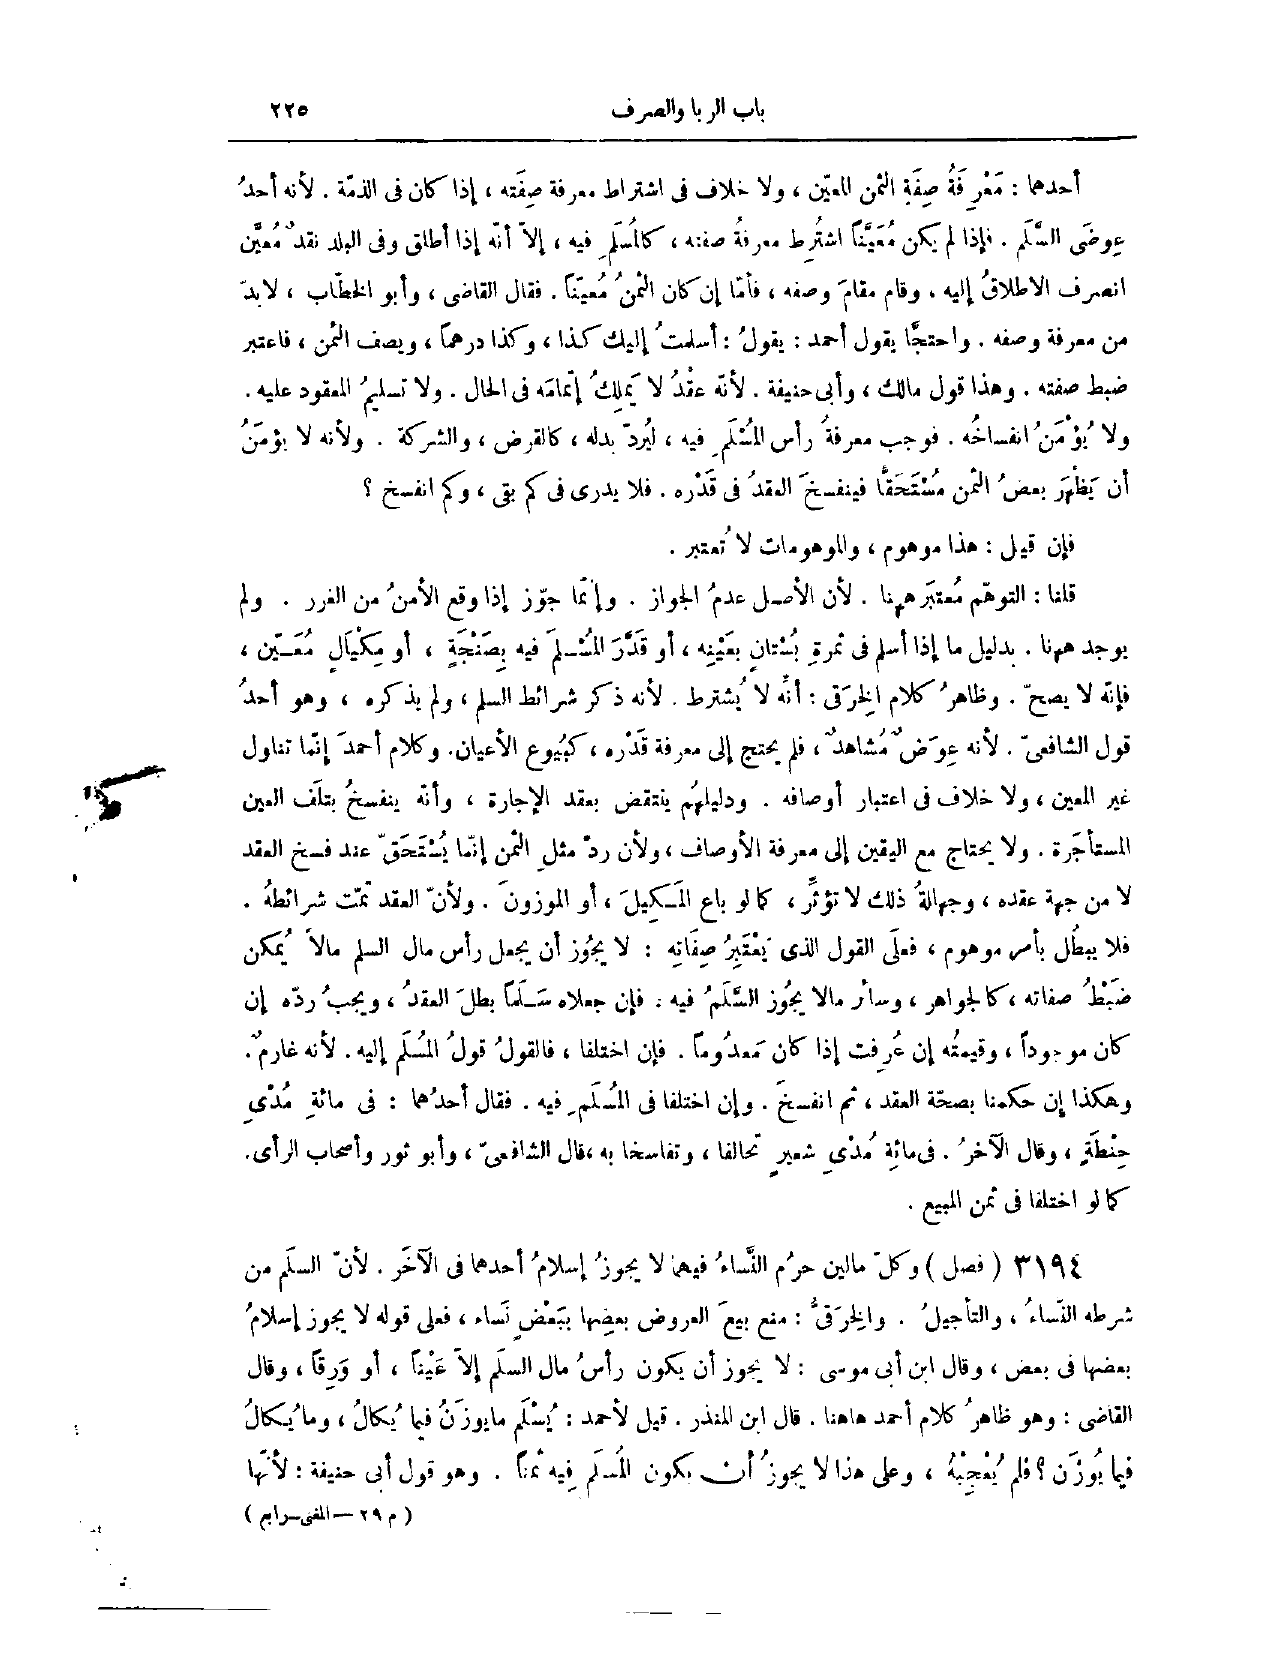 باب الربا والصرف ٢٢٥
أحدهما : مَعْرِفَةُ صِفَةِ الثمن المعيّن ، ولا خلاف فى اشتراط معرفة صِفَته ، إذا كان فى الذمّة . لأنه أحدُ
عِوضَى السَّلَم . فإذا لم يكن مُعَيَّناً اشتُرِط معرفةُ صفته ، كالمُسلَمِ فيه ، إلاّ أنّه إذا أطلق وفى البلد نقدٌ مُعيَّن
انصرف الاطلاقُ إليه . وقام مقامَ وصفه ، فأمّا إن كان الثمنُ مُعيّناً . فقال القاضى ، وأبو الخطّاب ، لابدَّ
من معرفة وصفه . واحتجَّا بقول أحمد : يقولُ : أسلمتُ إليك كذا ، وكذا درهماً ، ويصف الثمن ، فاعتبر
ضبط صفته . وهذا قول مالك ، وأبى حنيفة . لأنّه عقْدُ لا يَملِكُ إتمامَه فى الحال . ولا تسليمُ المعقود عليه .
ولا يُؤْمَنُ انفساخُه . فوجب معرفةُ رأس المُسْلَمِ فيه ، ليُردّ بدله ، كالقرض ، والشركة . ولأنه لا يؤمَنُ
أن يَظْهَر بعضُ الثمن مُسْتَحَقًّا فينفسخَ العقدُ فى قَدْره . فلا يدرى فى كم بقى ، وكم انفسخ ؟
فإن قيل : هذا موهوم ، والموهومات لا تُعتبر .
قلنا : التوهّم مُعتبَر ههنا . لأن الأصل عدمُ الجواز . وإنّما جوّز إذا وقع الأمنُ من الغرر . ولم
يوجد ههنا . بدليل ما إذا أسلم فى ثمرةِ بُسْتانٍ بعَيْنِه ، أو قَدَّرَ المُسْـلَمَ فيه بِصَنْجَةٍ ، أو مِكْيَالٍ مُعَـيّن ،
فإنّه لا يصحّ . وظاهرُ كلام الخِرَقى : أنّه لا يُشترط . لأنه ذكر شرائط السلم ، ولم يذكره ، وهو أحدُ
قول الشافعىّ . لأنه عِوَضٌ مُشاهدٌ ، فلم يحتج إلى معرفة قَدْره ، كبُيوع الأعيان. وكلام أحمدَ إنّما تناول
غير المعين ، ولا خلاف فى اعتبار أوصافه . ودليلهُم ينتقض بعقد الإجارة ، وأنّه ينفسخُ بتلَف العين
المستأجَرة . ولا يحتاج مع اليقين إلى معرفة الأوصاف ، ولأن ردّ مثلِ الثمن إنّما يُسْتَحَقّ عند فسخ العقد
لا من جهة عقده ، وجهالةُ ذلك لا تؤثِّر ، كما لو باع المَـكيلَ ، أو الموزونَ . ولأنّ العقد تمّت شرائطهُ .
فلا يبطُل بأمر موهوم ، فعلَى القول الذى يَعْتَبِرُ صِفَاتِه : لا يجُوز أن يجعل رأس مال السلم مالاً يُمكن
ضَبْطُ صفاته ، كالجواهر ، وسائر مالا يجُوز السَّلَمُ فيه . فإن جعلاه سَـلَماً بطلَ العقدُ ، ويجبُ ردّه إن
كان موجوداً ، وقيمتُه إن عُرفت إذا كان مَعدُوماً . فإن اختلفا ، فالقولُ قولُ المُسْلَم إليه . لأنه غارمٌ .
وهكذا إن حكمنا بصحّة العقد ، ثم انفسخَ . وإن اختلفا فى المُسلَمِ فيه . فقال أحدُهما : فى مائةِ مُدْىِ
حِنْطَةٍ ، وقال الآخرُ . فى مائِة مُدْىِ شعيرٍ تحالفا ، وتفاسخا به ،قال الشافعىّ ، وأبو ثور وأصحاب الرأى .
كما لو اختلفا فى ثمن المبيع .
٣١٩٤ ( فصل ) وكلّ مالين حرُم النَّساءُ فيهما لا يجوزُ إسلامُ أحدهما فى الآخَر . لأنّ السلَم من
شرطه النّساءُ ، والتأجيلُ . والخِرَقىُّ : منع بيعَ العروض بعضِها ببَعْضٍ نَساء ، فعلى قوله لا يجوز إسلامُ
بعضها فى بعض ، وقال ابن أبى موسى : لا يجوز أن يكون رأسُ مال السلَم إلاّ عَيْناً ، أو وَرِقاً ، وقال
القاضى : وهو ظاهرُ كلام أحمد هاهنا . قال ابن المنذر . قيل لأحمد : يُسْلَم مايوزَنُ فيما يُكالُ ، وما يُكالُ
فيما يُوزَن ؟ فلم يُعْجِبْهُ ، وعلى هذا لا يجوزُ أن يكون المُسلَم فِيه ثمناً . وهو قول أبى حنيفة : لأنّها
( م ٢٩ – المغنى – رابع )